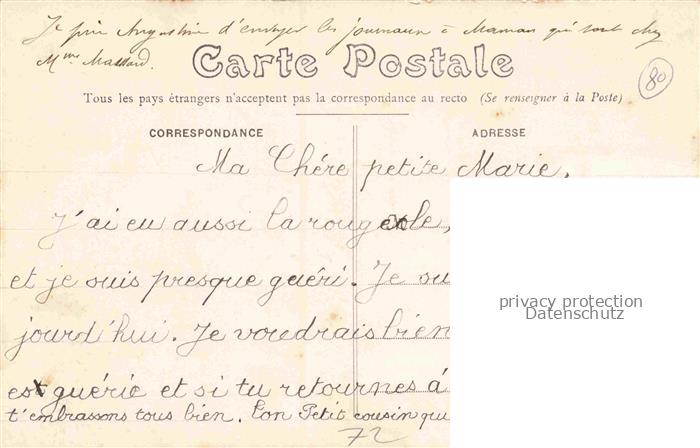 Je prie Augustine d'envoyer les journaux à Maman qui sont chez
Mme Massard.
80
Carte Postale
Tous les pays étrangers n'acceptent pas la correspondance au recto (Se renseigner à la Poste)
CORRESPONDANCE
ADRESSE
Ma Chére petite Marie,
J'ai eu aussi la rougeole,
et je suis presque guéri. Je su
jourd'hui. Je voudrais bien
est guérie et si tu retournes á
t'embrassons tous bien. Ton Petit cousin qu
72
privacy protection
Datenschutz